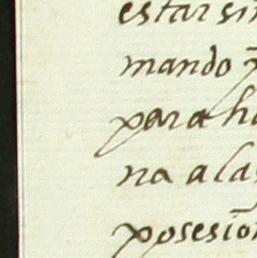 estar sin
mando
para ha
na a las
posesion